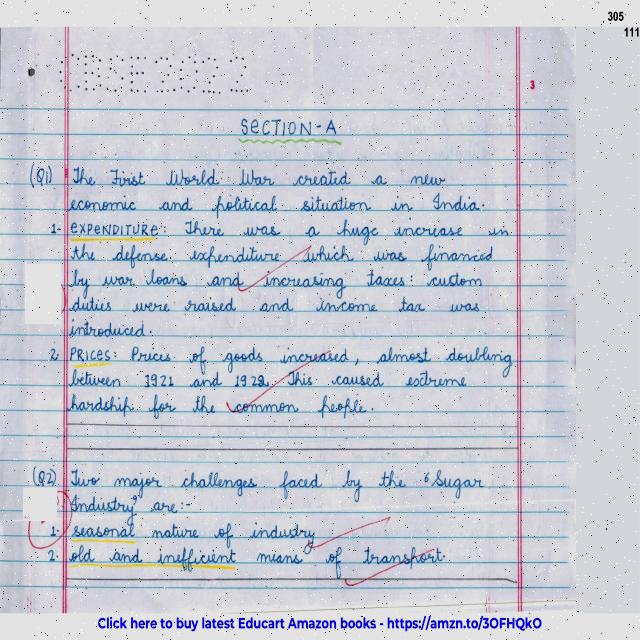 305
111
CBSE 2022
3
SECTION-A
(Q1) The First World War created a new
economic and political situation in India.
1- EXPENDITURE: There was a huge increase in
the defense expenditure which was financed
by war loans and increasing taxes: custom
duties were raised and income tax was
introduced.
2 PRICES: Prices of goods increased, almost doubling
between 1921 and 1922. This caused extreme
hardship for the common people.
(Q2) Two major challenges faced by the "Sugar
Industry" are:-
1. seasonal nature of industry
2. old and inefficient means of transport.
Click here to buy latest Educart Amazon books - https://amzn.to/3OFHQkO